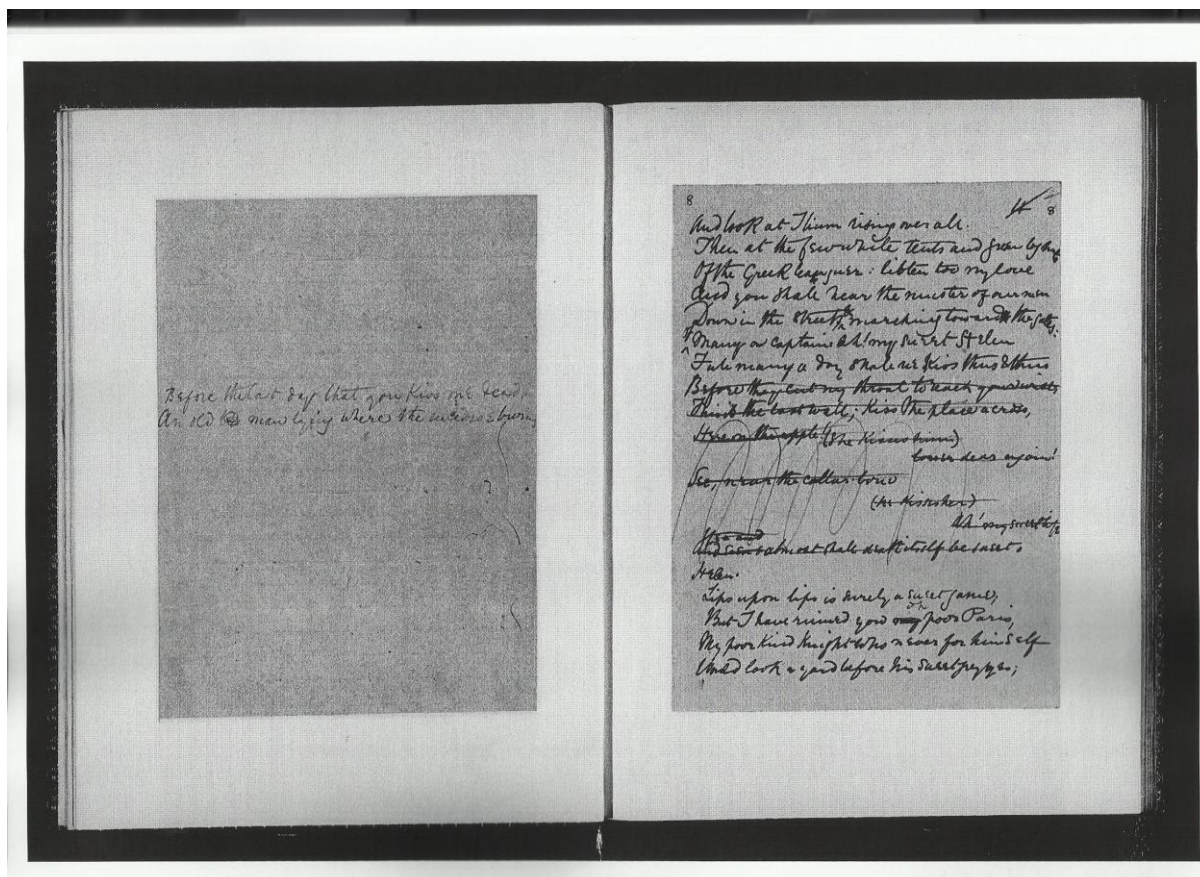 Before the last day that you kiss me dead
An old man lying where the
8
8
And look at Ilium rising over all.
Then at the few white tents and green
Of the Greek leaguer: listen too my love
And you shall hear the muster of our men
Down in the street marching toward the gates:
Many a captain Ah! my sweet Helen
Full many a day shall we kiss thus & thus
Before they cut my throat to
the last wall; kiss the place across,
Here on the apple! (She kisses him)
Lower dear again!
See, near the collar bone
(he kisses her)
Ah! my sweet life
And so almost shall death itself be sweet.
Helen.
Lips upon lips is surely a sweet game,
But I have ruined you my poor Paris,
My poor kind knight who never for himself
Would look a yard before his sweet eyes;